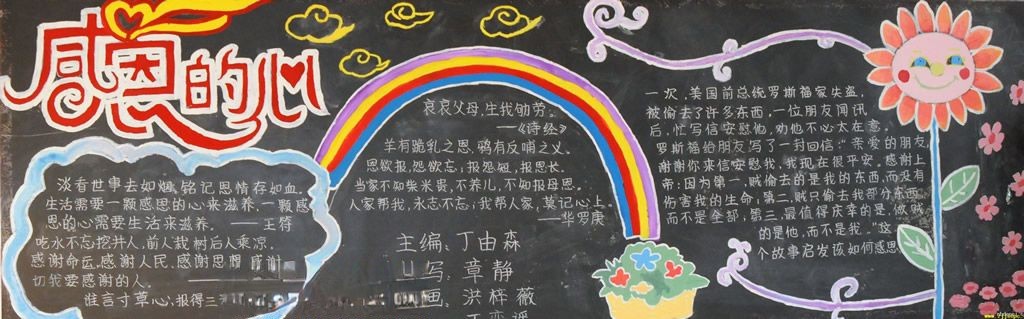 感恩的心
淡看世事去如烟,铭记恩情存如血。
生活需要一颗感恩的心来滋养,一颗感
恩的心需要生活来滋养。——王符
吃水不忘挖井人,前人栽树后人乘凉。
感谢命运,感谢人民,感谢思想,感谢
切我要感谢的人。
谁言寸草心,报得三
哀哀父母,生我劬劳。
——《诗经》
羊有跪乳之恩,鸦有反哺之义。
恩欲报,怨欲忘;报怨短,报恩长。
当家不知柴米贵,不养儿,不知报母恩。
人家帮我,永志不忘;我帮人家,莫记心上。
——华罗庚
主编、丁由森
写、章静
画、洪梓薇
一次,美国前总统罗斯福家失盗,
被偷去了许多东西,一位朋友闻讯
后,忙写信安慰他,劝他不必太在意。
罗斯福给朋友写了一封回信:"亲爱的朋友,
谢谢你来信安慰我,我现在很平安。感谢上
帝:因为第一,贼偷去的是我的东西,而没有
伤害我的生命;第二,贼只偷去我部分东西,
而不是全部;第三,最值得庆幸的是,做贼
的是他,而不是我。"这
个故事启发该如何感恩